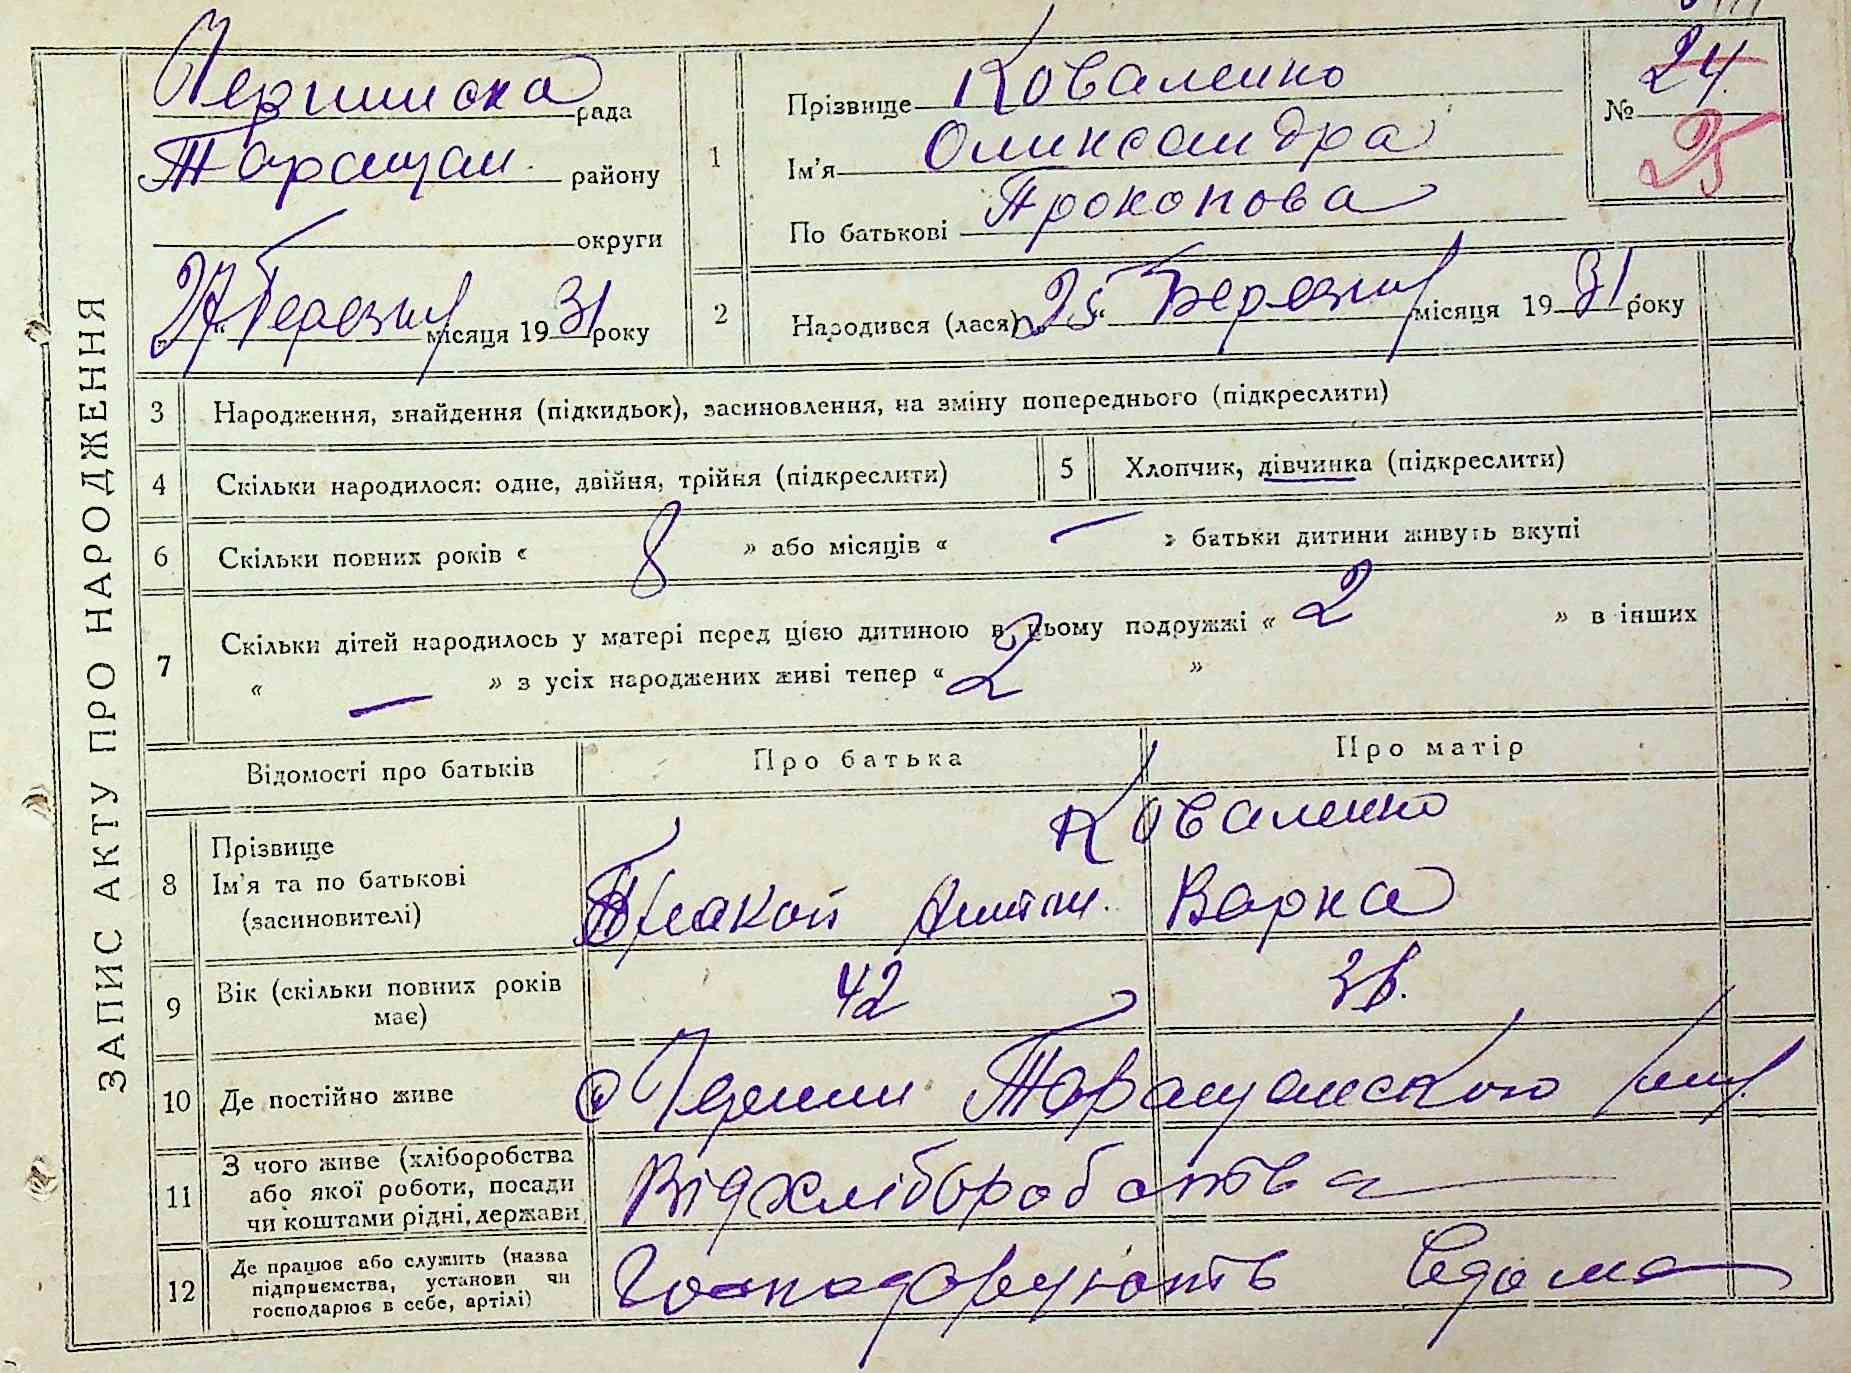 ЗАПИС АКТУ ПРО НАРОДЖЕННЯ
рада
Таращан. району
округи
27 Березня місяця 1931 року
1
Прізвище Коваленко
Ім'я Олександра
По батькові Прокопова
№ 24
25
2
Народився (лася) „25“ Березня місяця 1931 року
3 Народження, знайдення (підкидьок), засиновлення, на зміну попереднього (підкреслити)
4 Скільки народилося: одне, двійня, трійня (підкреслити)
5 Хлопчик, дівчинка (підкреслити)
6 Скільки повних років « 8 » або місяців « — » батьки дитини живуть вкупі
7 Скільки дітей народилось у матері перед цією дитиною в цьому подружжі « 2 » в інших
« — » з усіх народжених живі тепер « 2 »
Відомості про батьків
Про батька
Про матір
8 Прізвище
Ім'я та по батькові
(засиновителі)
Коваленко
Антон. Варка
9 Вік (скільки повних років
має)
42
10 Де постійно живе
Таращанского
11 З чого живе (хліборобства
або якої роботи, посади
чи коштами рідні, держави
Від хліборобства
12 Де працює або служить (назва
підприємства, установи чи
господарює в себе, артілі)
Господарюють вдома